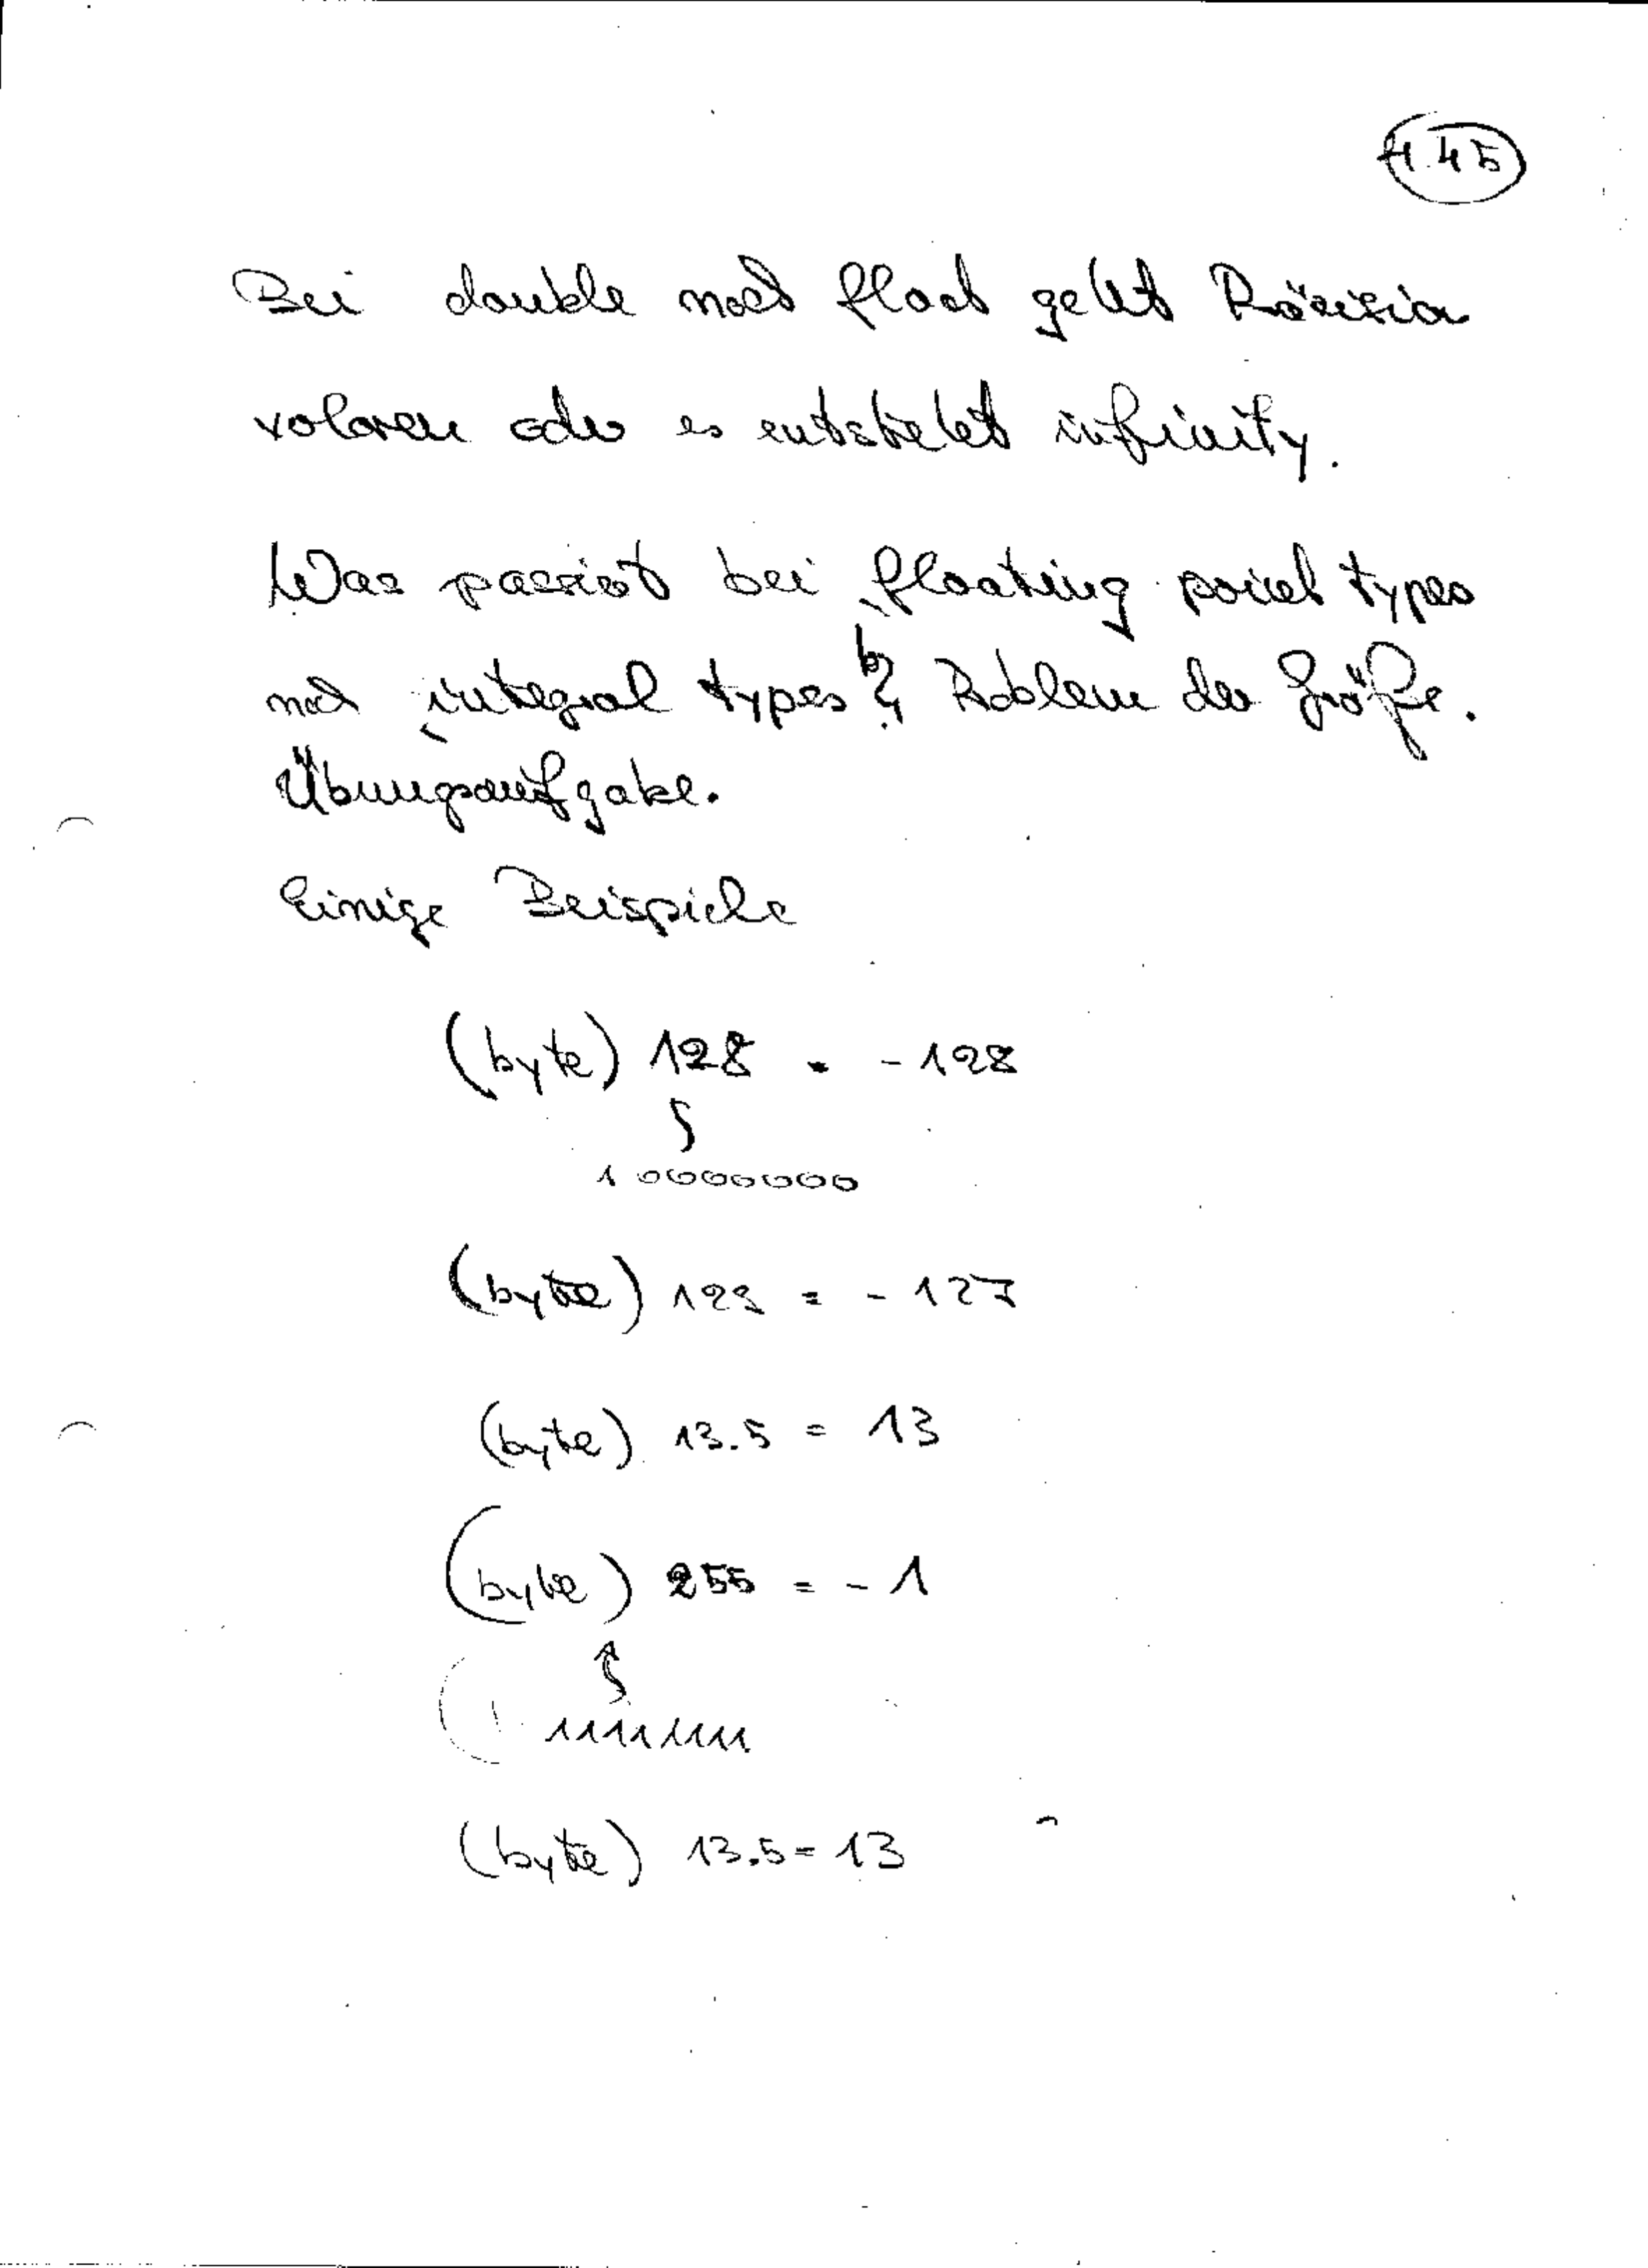 4.45
Bei double nach float geht Präzision
verloren oder es entsteht infinity.
Was passiert bei floating point types
nach integral types? Problem der Größe.
Übungsaufgabe.
Einige Beispiele
(byte) 128 = -128
1 0000000
(byte) 129 = -127
(byte) 13.5 = 13
(byte) 255 = -1
11111111
(byte) 13.5 = 13